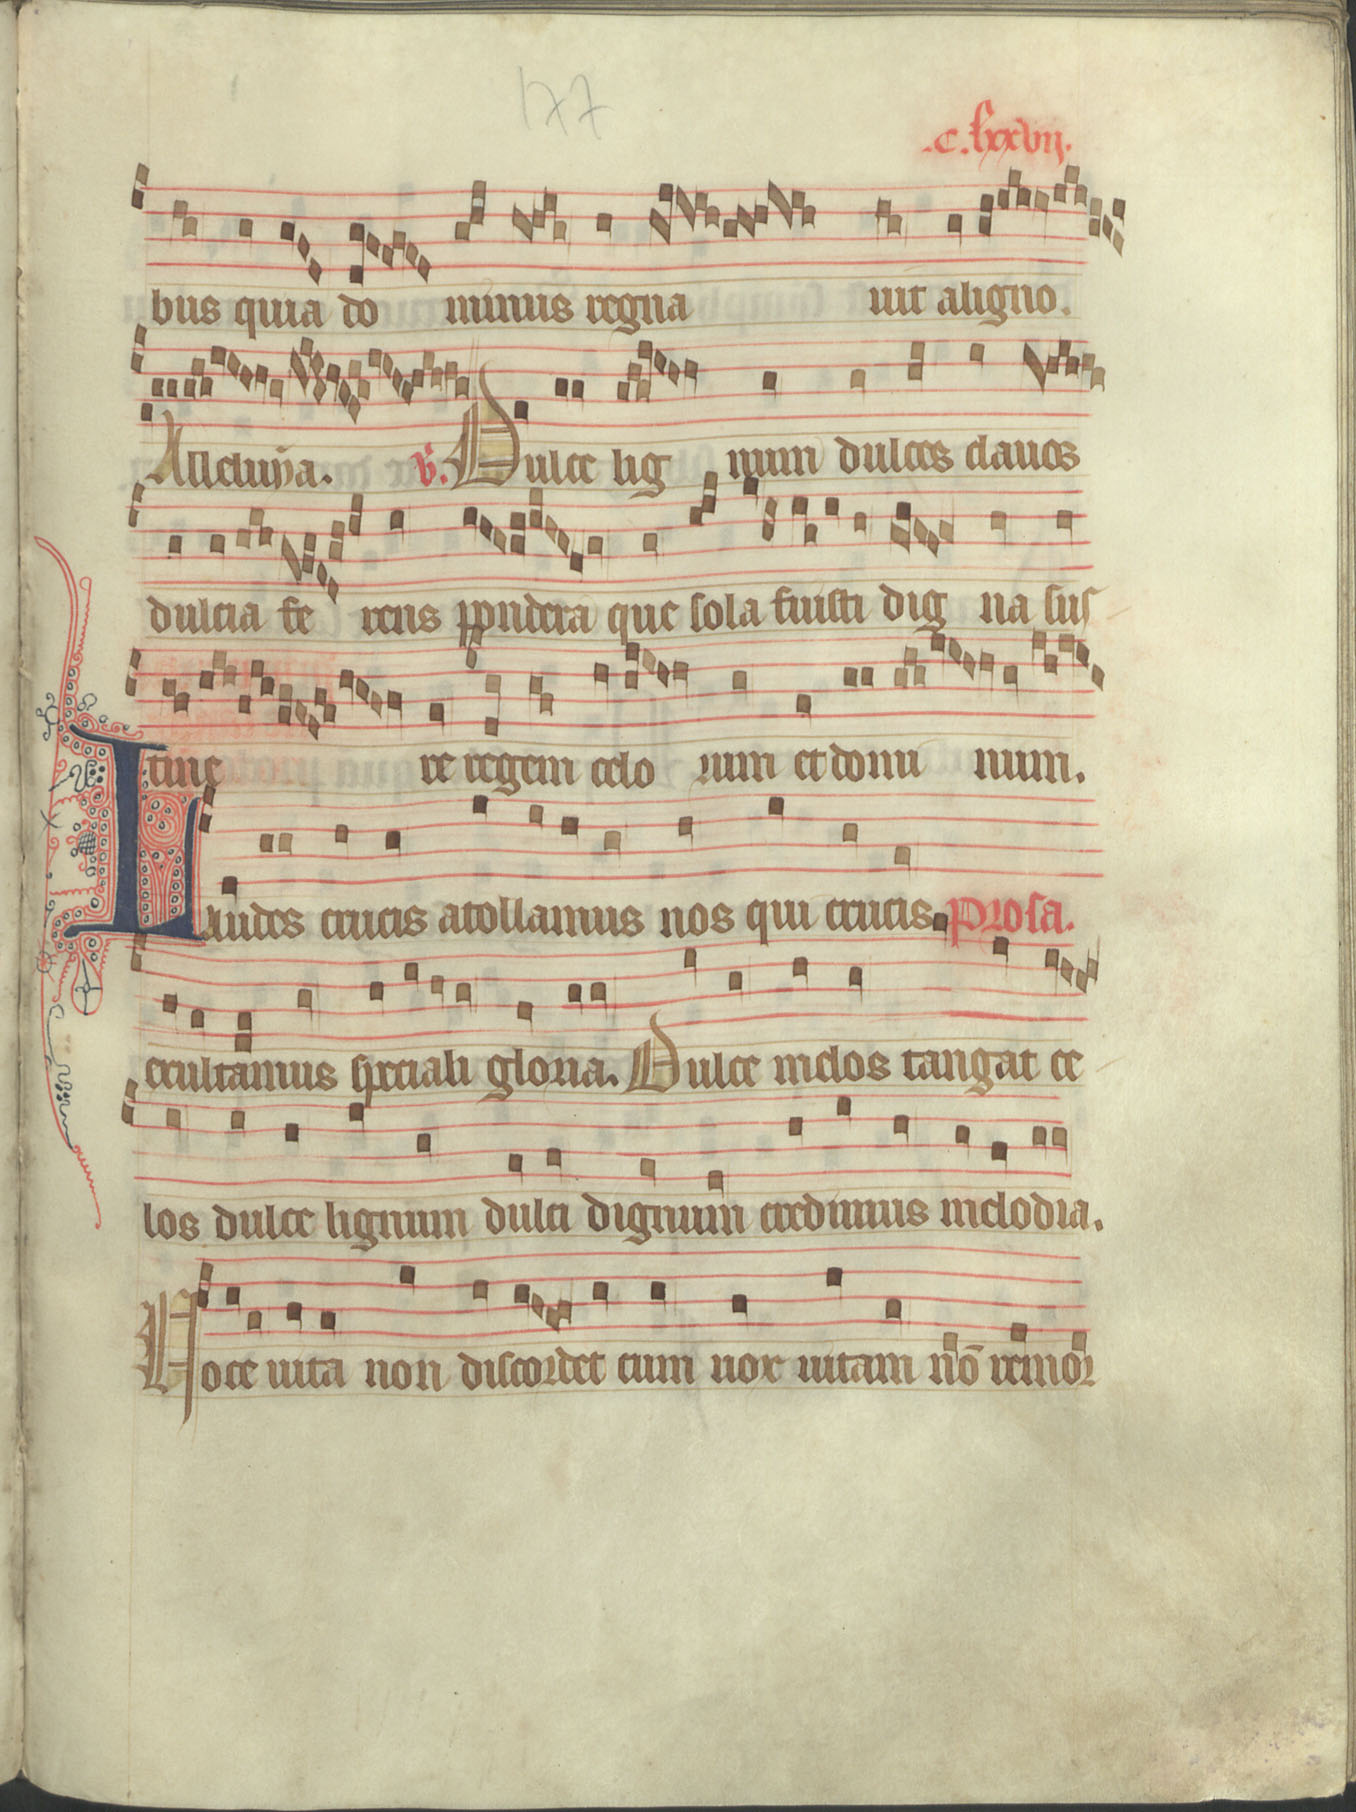 177
.c.lxxvij.
bus quia do minus regna uit aligno.
Alleluya. v. Dulce lig num dulces clauos
dulcia fe rens pondera que sola fuisti dig na sus
tine re regem celo rum et domi num.
Laudes crucis atollamus nos qui crucis Prosa.
exultamus speciali gloria. Dulce melos tangat ce
los dulce lignum dulci dignum credimus melodia.
Uoce uita non discordet cum uox uitam nō remor